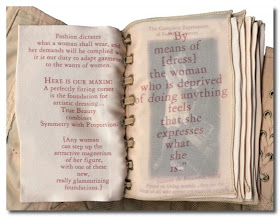 Fashion dictates
what a woman shall wear, and
her demands will be complied
it is our duty to adapt garments
to the wants of women.
HERE IS OUR MAXIM:
A perfectly fitting corset
is the foundation for
artistic dressing
True Beauty
combines
Symmetry with Proportions
[Any woman
can step up the
attractive magnetism
of her figure,
with one of these
new,
really glamourizing
foundations.]
The Complete Expression
"By
means of
[dress]
the woman
who is deprived
of doing anything
feels
that she
expresses
what
she
is."